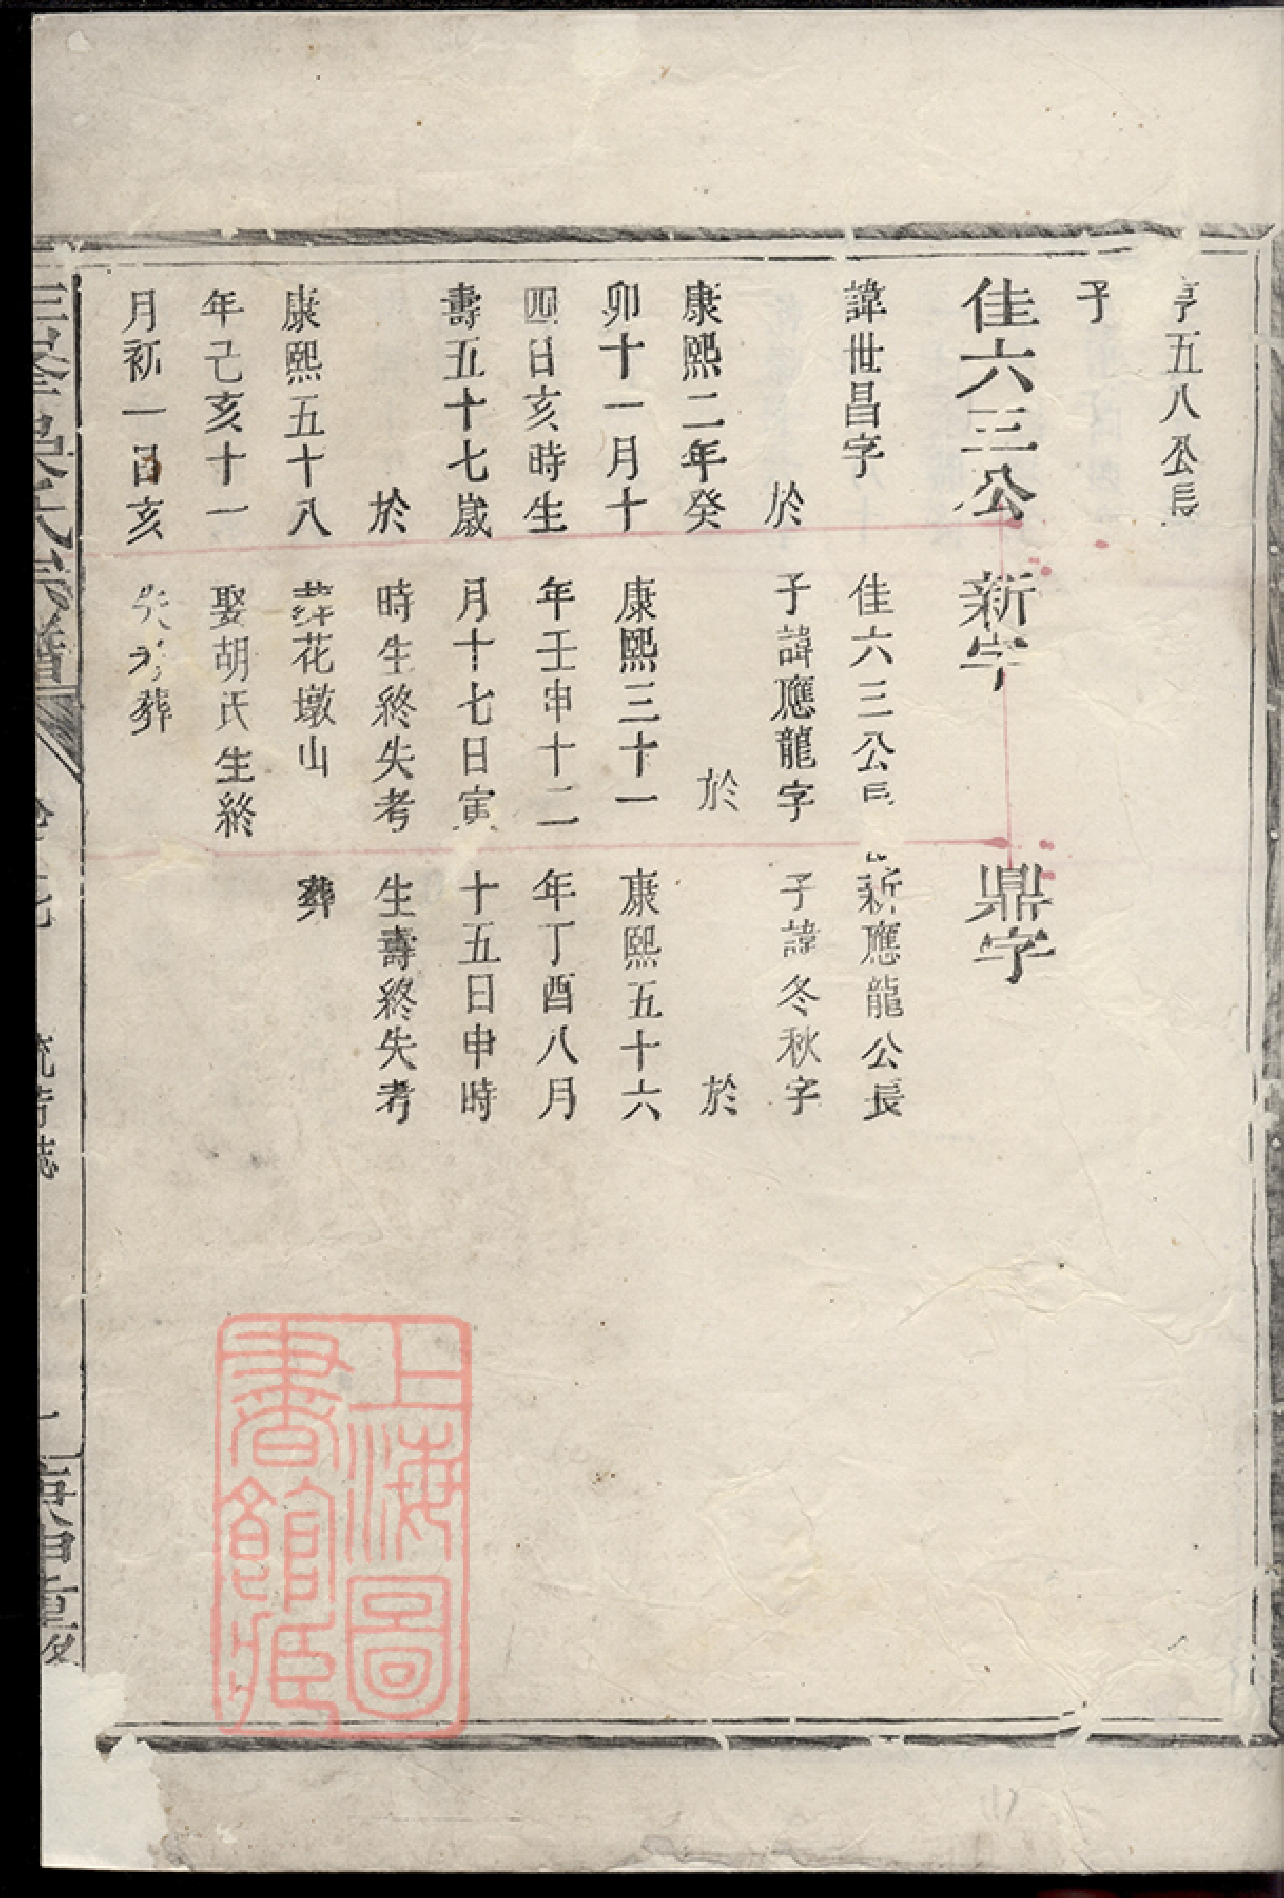 亨五八公長
子
佳六三公
諱世昌字
於
康熙二年癸
卯十一月十
四日亥時生
壽五十七歲
於
康熙五十八
年己亥十一
月初一日亥
新字
佳六三公長
子諱應龍字
於
康熙三十一
年壬申十二
月十七日寅
時生終失考
葬花墩山
娶胡氏生終
失考葬
鼎字
新應龍公長
子諱冬秋字
於
康熙五十六
年丁酉八月
十五日申時
生壽終失考
葬
氏宗譜
上海圖
書館藏